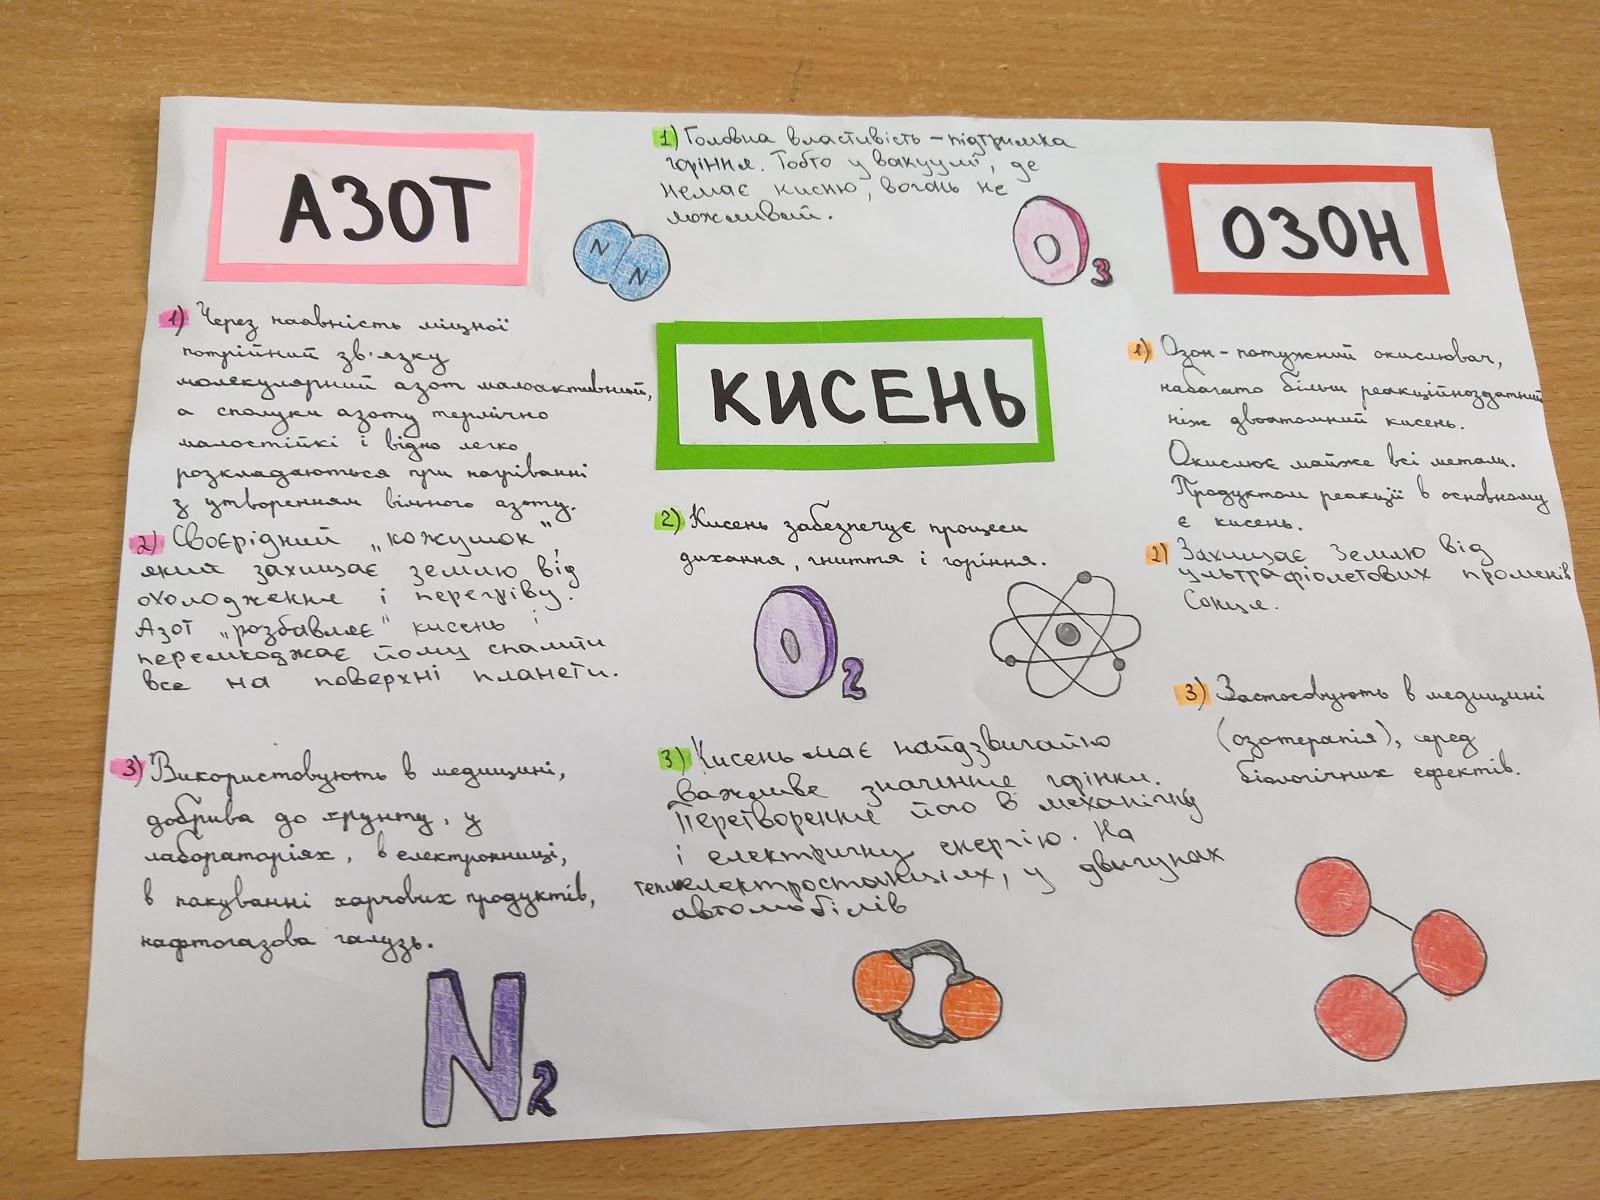 АЗОТ
N
N
1) Через наявність міцної
потрійний зв'язку
молекулярний азот малоактивний,
а сполуки азоту термічно
малостійкі і відно легко
розкладаються при нагріванні
з утворенням вільного азоту.
2) Своєрідний „кожушок",
який захищає землю від
охолодження і перегріву.
Азот „розбавляє" кисень і
перешкоджає йому спалити
все на поверхні планети.
3) Використовують в медицині,
добрива до ґрунту, у
лабораторіях, в електронниці,
в пакуванні харчових продуктів,
нафтогазова галузь.
N2
1) Головна властивість – підтримка
горіння. Тобто у вакуумі, де
немає кисню, вогонь не
можливий.
КИСЕНЬ
2) Кисень забезпечує процеси
дихання, гниття і горіння.
O2
3) Кисень має найдзвичайно
важливе значиние горінки.
Перетворение його в механічну
і електричну енергію. На
теплоелектростанціях, у двигунах
автомобілів
O3
ОЗОН
1) Озон – потужний окислювач,
набагато більш реакційноздатний
ніж двоатомний кисень.
Окислює майже всі метали.
Продуктом реакції в основному
є кисень.
2) Захищає Землю від
ультрафіолетових променів
Сонця.
3) Застосовують в медицині
(озотерапія), серед
біологічних ефектів.